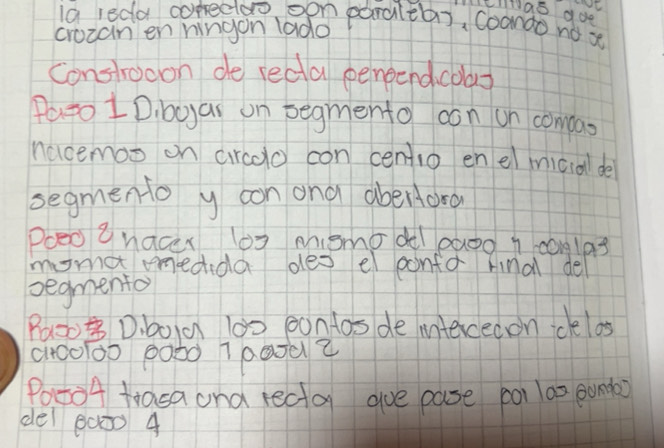 la recta son paralelas, Coando no se
crozan en ningon lado
Constrocon de recta perpendicolas
Paso 1 Dibojar un segmento con un compas
hacemos un circolo con centro en el inicial del
segmento y con ona abertora
Paso 2 hacer los mismo del paso 1 con las
misma medida des el ponto final del
segmento
Paso 3 Diboja los pontos de intercecion de los
circolos paso 1 pasa 2
Paso 4 trasa una recta que pase por los puntos
del paso 4